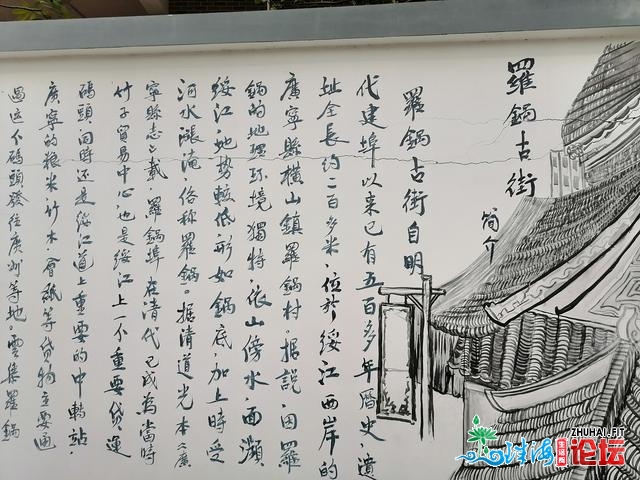 羅鍋古街
简介
羅鍋古街自明
代建埠以来已有五百多年歷史，遺
址全長约二百多米，位於绥江西岸的
廣寧縣橫山鎮羅鍋村。据説，因羅
鍋的地理环境獨特，依山傍水，面瀕
绥江，地势較低，形如鍋底，加上時受
河水漲淹，俗称羅鍋。据清道光本《廣
寧縣志》载，羅鍋埠在清代已成為當時
竹子貿易中心，也是绥江上一个重要貨運
碼頭，同時还是绥江道上重要的中轉站，
廣寧的粮米、竹木、會紙等貨物主要通
過这个碼頭發往廣州等地。雲集羅鍋
ZHUHAI.FT
珠海
生活圈
论坛